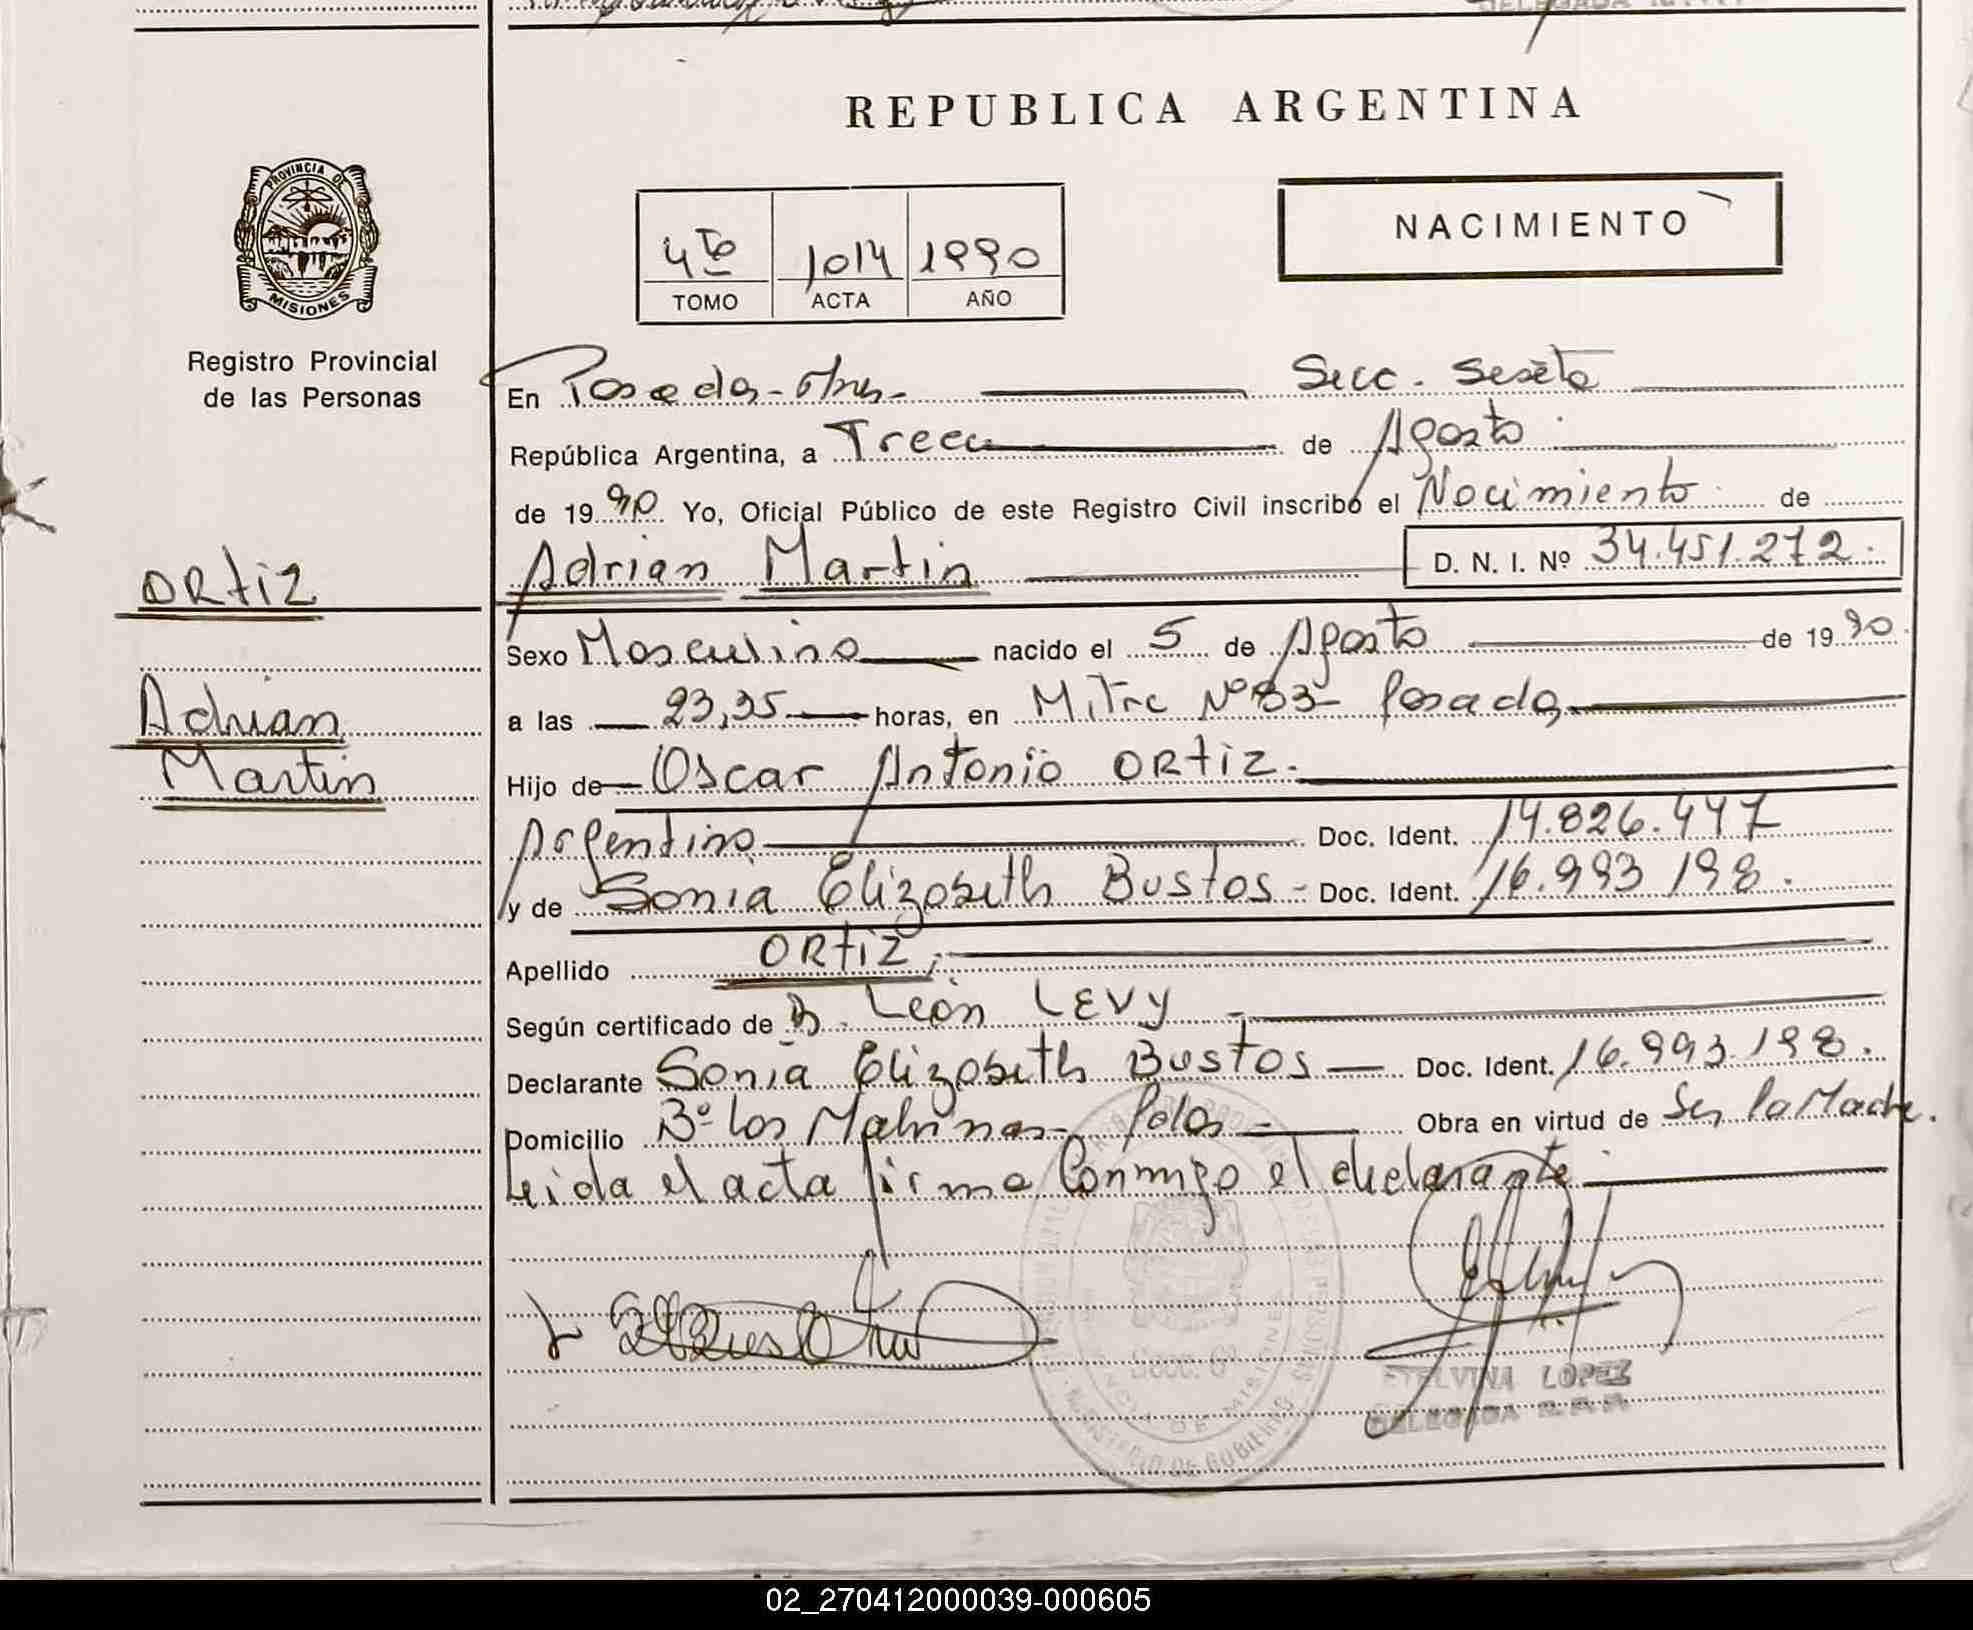 REPUBLICA ARGENTINA
PROVINCIA DE
MISIONES
Registro Provincial
de las Personas
4to 1014 1990
TOMO ACTA AÑO
NACIMIENTO
En Posadas - Mnes - Secc. Sexta
República Argentina, a Trece de Agosto
de 1990 Yo, Oficial Público de este Registro Civil inscribo el Nacimiento de
Adrian Martin D. N. I. Nº 34.451.272.
ORtiz
Adrian
Martin
Sexo Masculino nacido el 5 de Agosto de 1990
a las 23,35 horas, en Mitre Nº 83 - Posadas
Hijo de Oscar Antonio ORtiz.
Argentino Doc. Ident. 14.826.447
y de Sonia Elizabeth Bustos - Doc. Ident. 16.993 198.
Apellido ORtiz
Según certificado de D. León LEVY
Declarante Sonia Elizabeth Bustos Doc. Ident. 16.993.198.
Domicilio Bº Los Malvinas - Pdas - Obra en virtud de Ser la Madre.
Leida el acta firma Conmigo el declarante
Secc. 6
MINISTERIO DE GOBIERNO
ETELVINA LOPEZ
DELEGADA
02_270412000039-000605